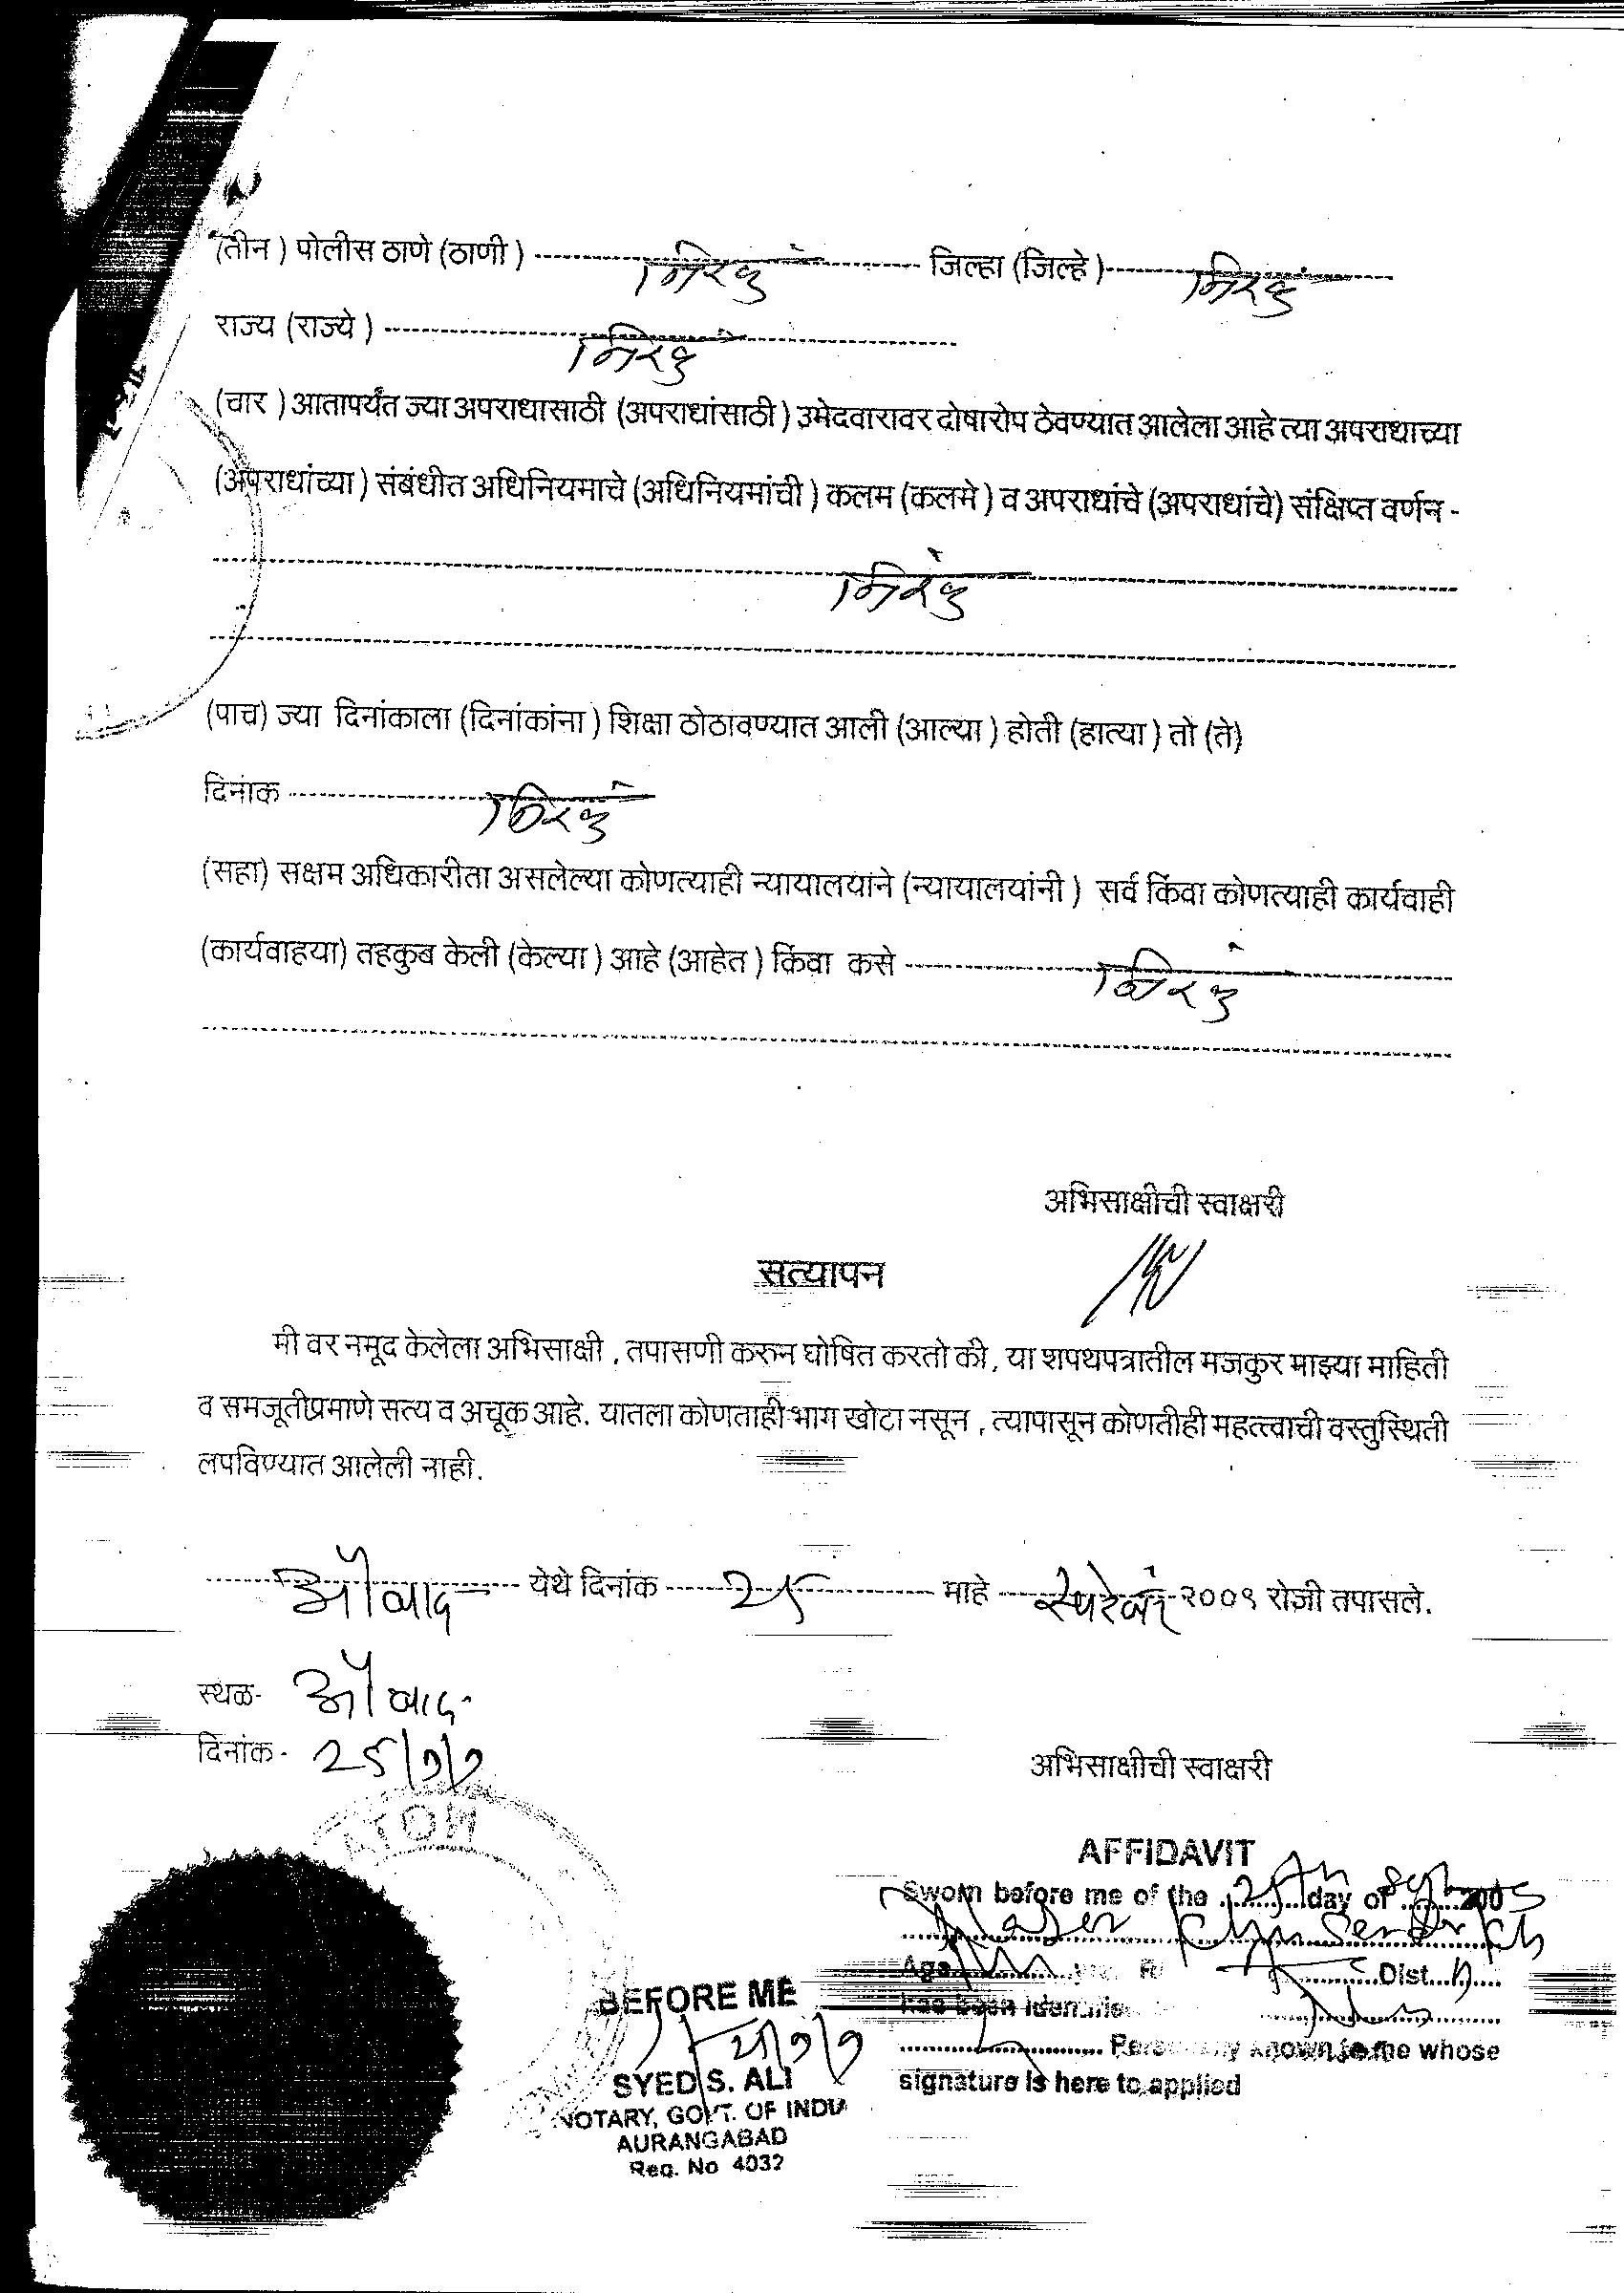 (तीन ) पोलीस ठाणे (ठाणी ) ---------- निरंक ---------- जिल्हा (जिल्हे )---------- निरंक
राज्य (राज्ये ) ---------- निरंक ----------
(चार ) आतापर्यंत ज्या अपराधासाठी (अपराधांसाठी ) उमेदवारावर दोषारोप ठेवण्यात आलेला आहे त्या अपराधाच्या
(अपराधांच्या ) संबंधीत अधिनियमाचे (अधिनियमांची ) कलम (कलमे ) व अपराधांचे (अपराधांचे) संक्षिप्त वर्णन -
निरंक
(पाच) ज्या दिनांकाला (दिनांकांना ) शिक्षा ठोठावण्यात आली (आल्या ) होती (हात्या ) तो (ते)
दिनांक ---------- निरंक
(सहा) सक्षम अधिकारीता असलेल्या कोणत्याही न्यायालयाने (न्यायालयांनी ) सर्व किंवा कोणत्याही कार्यवाही
(कार्यवाहया) तहकुब केली (केल्या ) आहे (आहेत ) किंवा कसे ---------- निरंक
अभिसाक्षीची स्वाक्षरी
सत्यापन
मी वर नमूद केलेला अभिसाक्षी , तपासणी करुन घोषित करतो की, या शपथपत्रातील मजकुर माझ्या माहिती
व समजूतीप्रमाणे सत्य व अचूक आहे. यातला कोणताही भाग खोटा नसून , त्यापासून कोणतीही महत्त्वाची वस्तुस्थिती
लपविण्यात आलेली नाही.
औ॑बाद येथे दिनांक ---- 25 ---- माहे ---- सप्टेंबर २००९ रोजी तपासले.
स्थळ- औ॑बाद
दिनांक - 25/9/9
अभिसाक्षीची स्वाक्षरी
AFFIDAVIT
Sworn before me of the 25th day of Sept 200
Age Dist.
has been identifie
Personally known to me whose
signature is here to applied
BEFORE ME
25/9/9
SYED S. ALI
NOTARY, GOVT. OF INDIA
AURANGABAD
Reg. No 4032